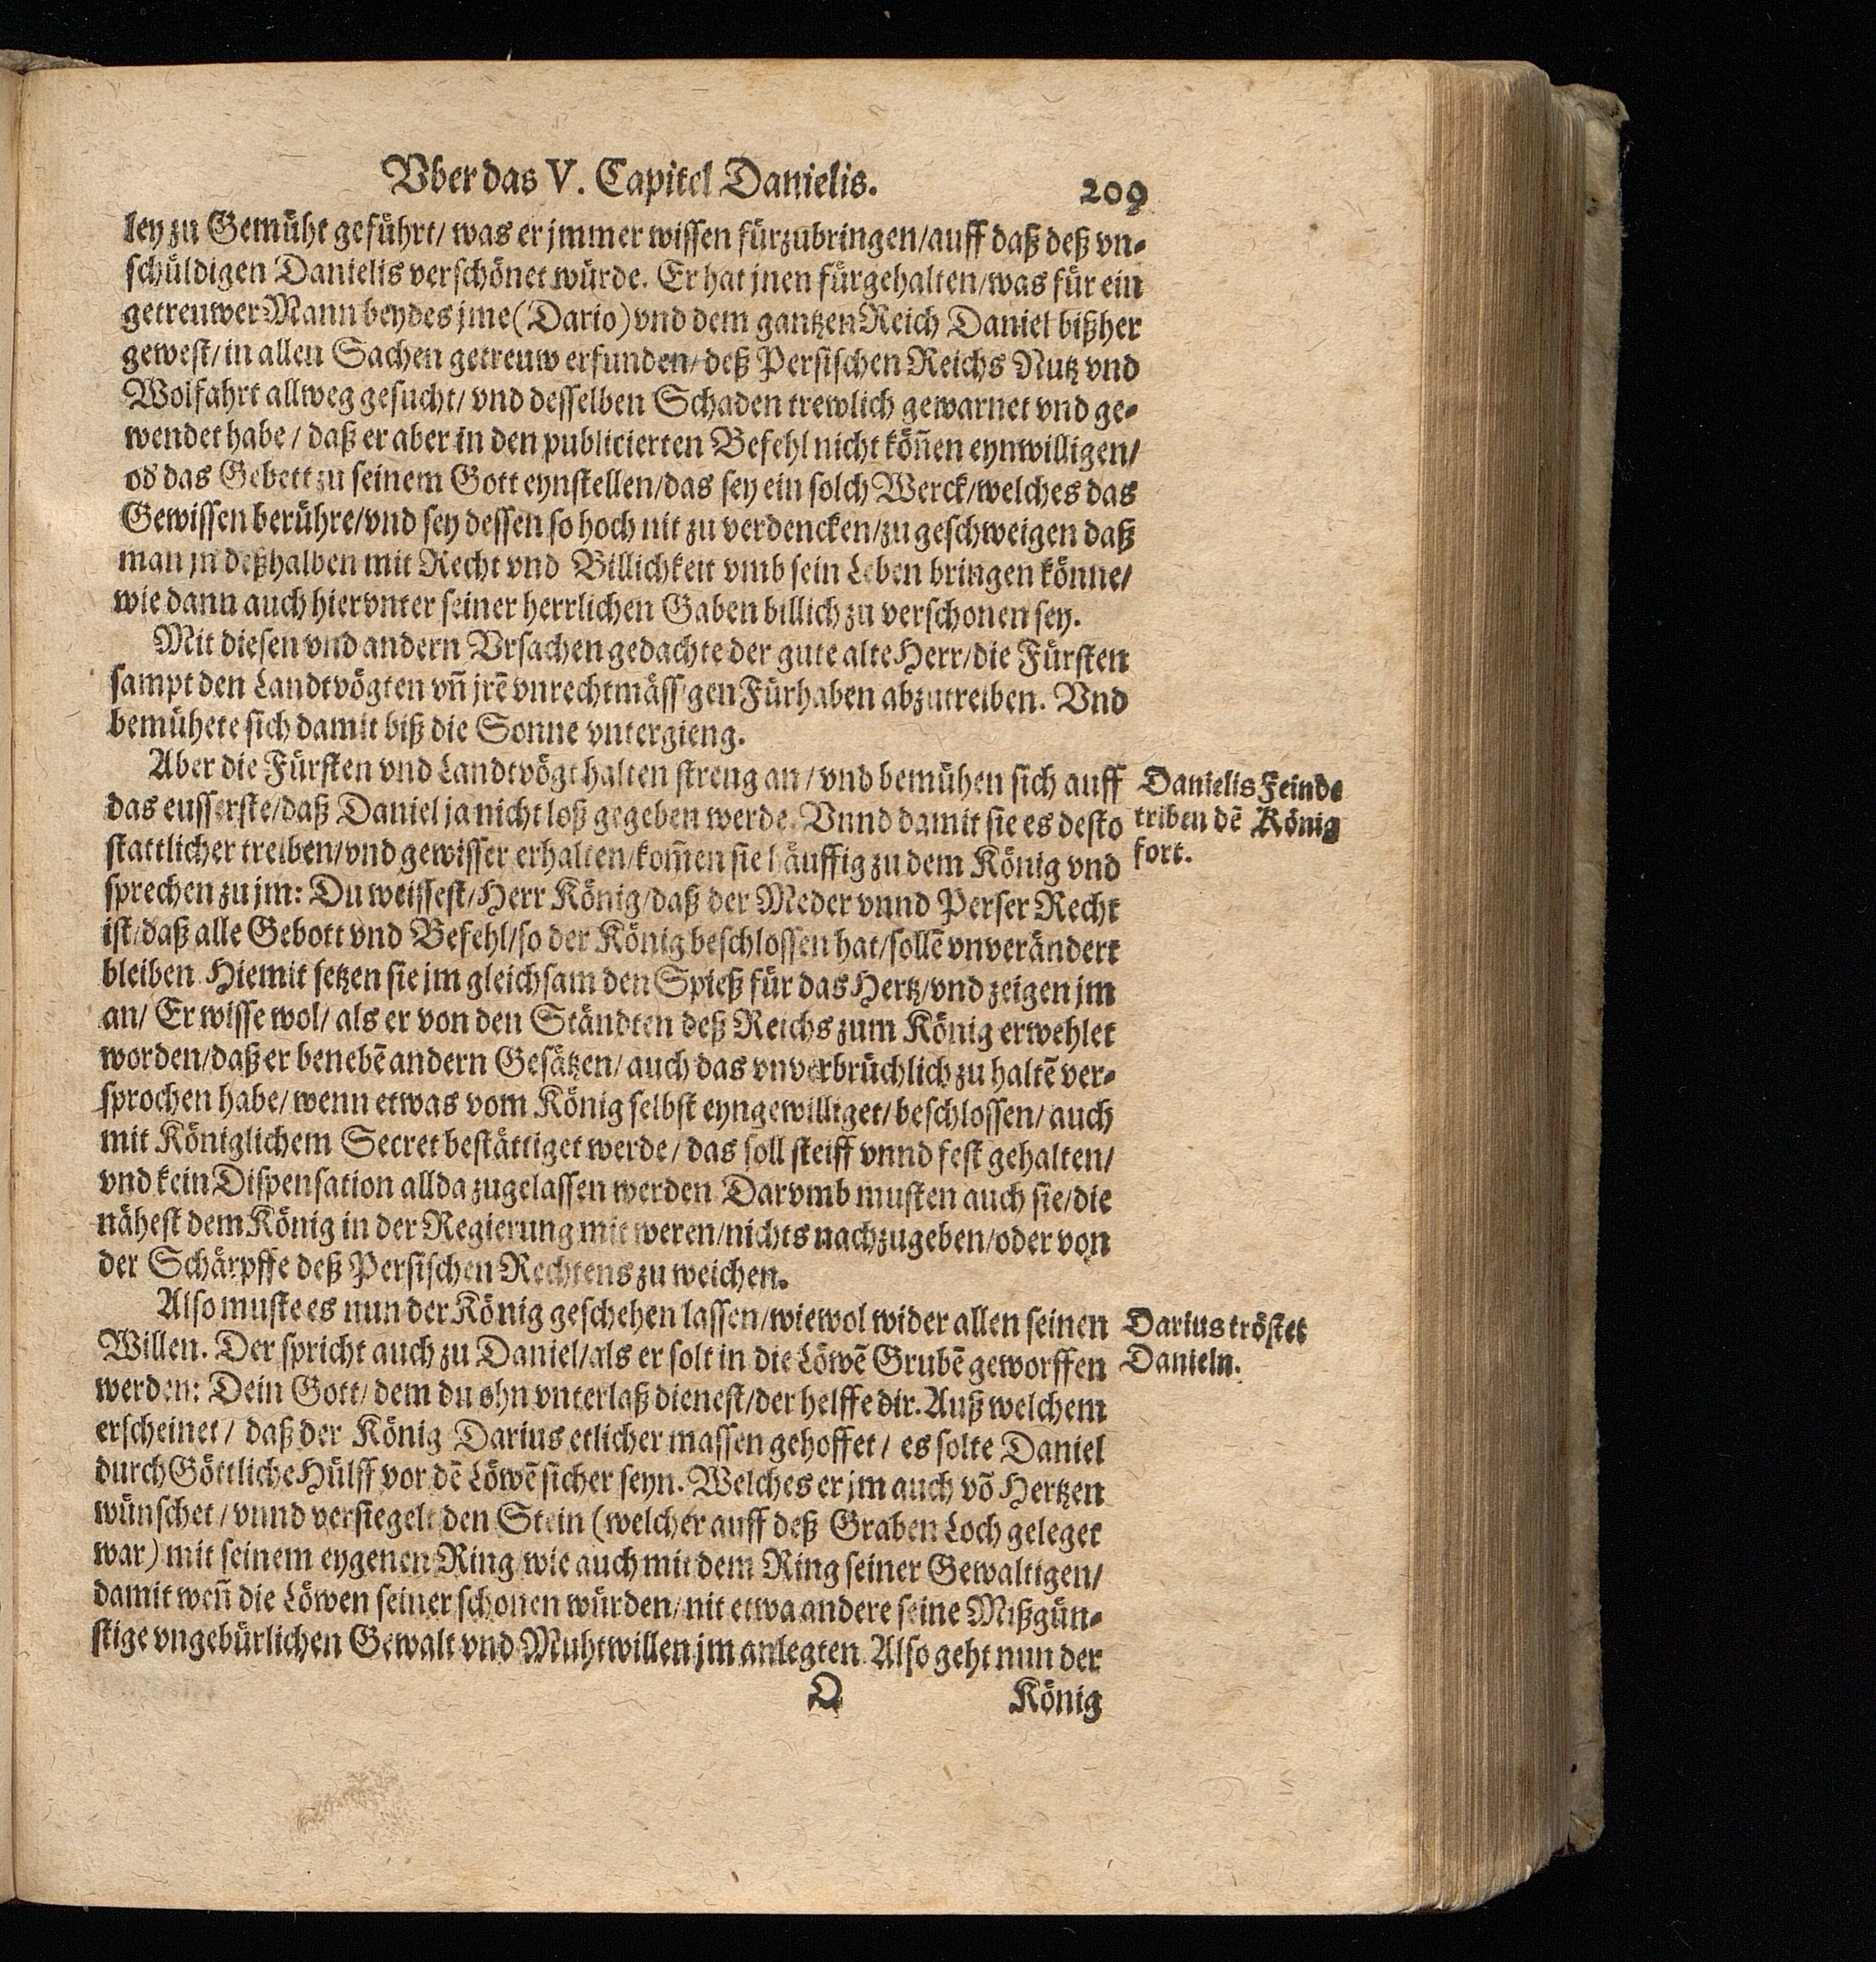 Vber das V. Capitel Danielis. 209
ley zu Gemüht geführt/ was er jmmer wissen fürzubringen/auff daß deß vn-
schüldigen Danielis verschönet würde. Er hat jnen fürgehalten/was für ein
getreuwer Mann beydes jme (Dario) vnd dem gantzen Reich Daniel bißher
gewest/ in allen Sachen getreuw erfunden/ deß Persischen Reichs Nutz vnd
Wolfahrt allweg gesucht/ vnd desselben Schaden trewlich gewarnet vnd ge-
wendet habe / daß er aber in den publicierten Befehl nicht köñen eynwilligen/
od das Gebett zu seinem Gott eynstellen/das sey ein solch Werck/welches das
Gewissen berühre/vnd sey dessen so hoch nit zu verdencken/zu geschweigen daß
man jn deßhalben mit Recht vnd Billichkeit vmb sein Leben bringen könne/
wie dann auch hiervnter seiner herrlichen Gaben billich zu verschonen sey.
Mit diesen vnd andern Vrsachen gedachte der gute alte Herr/die Fürsten
sampt den Landtvögten vñ jrẽ vnrechtmässigen Fürhaben abzutreiben. Vnd
bemühete sich damit biß die Sonne vntergieng.
Aber die Fürsten vnd Landtvögt halten streng an / vnd bemühen sich auff
das eusserste/daß Daniel ja nicht loß gegeben werde. Vnnd damit sie es desto
stattlicher treiben/vnd gewisser erhalten/kom̃en sie häuffig zu dem König vnd
sprechen zu jm: Du weissest/Herr König/daß der Meder vnnd Perser Recht
ist/daß alle Gebott vnd Befehl/so der König beschlossen hat/sollẽ vnverändert
bleiben. Hiemit setzen sie jm gleichsam den Spieß für das Hertz/vnd zeigen jm
an/ Er wisse wol/ als er von den Ständten deß Reichs zum König erwehlet
worden/daß er benebẽ andern Gesätzen/ auch das vnverbrüchlich zu haltẽ ver-
sprochen habe/ wenn etwas vom König selbst eyngewilliget/ beschlossen/ auch
mit Königlichem Secret bestättiget werde / das soll steiff vnnd fest gehalten/
vnd kein Dispensation allda zugelassen werden. Darvmb musten auch sie/die
nähest dem König in der Regierung mit weren/nichts nachzugeben/oder von
der Schärpffe deß Persischen Rechtens zu weichen.
Danielis Feinde
triben dẽ König
fort.
Also muste es nun der König geschehen lassen/wiewol wider allen seinen
Willen. Der spricht auch zu Daniel/als er solt in die Löwẽ Grubẽ geworffen
werden: Dein Gott/ dem du ohn vnterlaß dienest/der helffe dir. Auß welchem
erscheinet / daß der König Darius etlicher massen gehoffet / es solte Daniel
durch Göttliche Hülff vor dẽ Löwẽ sicher seyn. Welches er jm auch võ Hertzen
wünschet / vnnd versiegelt den Stein (welcher auff deß Graben Loch geleget
war) mit seinem eygenen Ring/ wie auch mit dem Ring seiner Gewaltigen/
damit weñ die Löwen seiner schonen würden/ nit etwa andere seine Mißgün-
stige vngebürlichen Gewalt vnd Muhtwillen jm anlegten. Also geht nun der
Darius tröstet
Danieln.
Q König